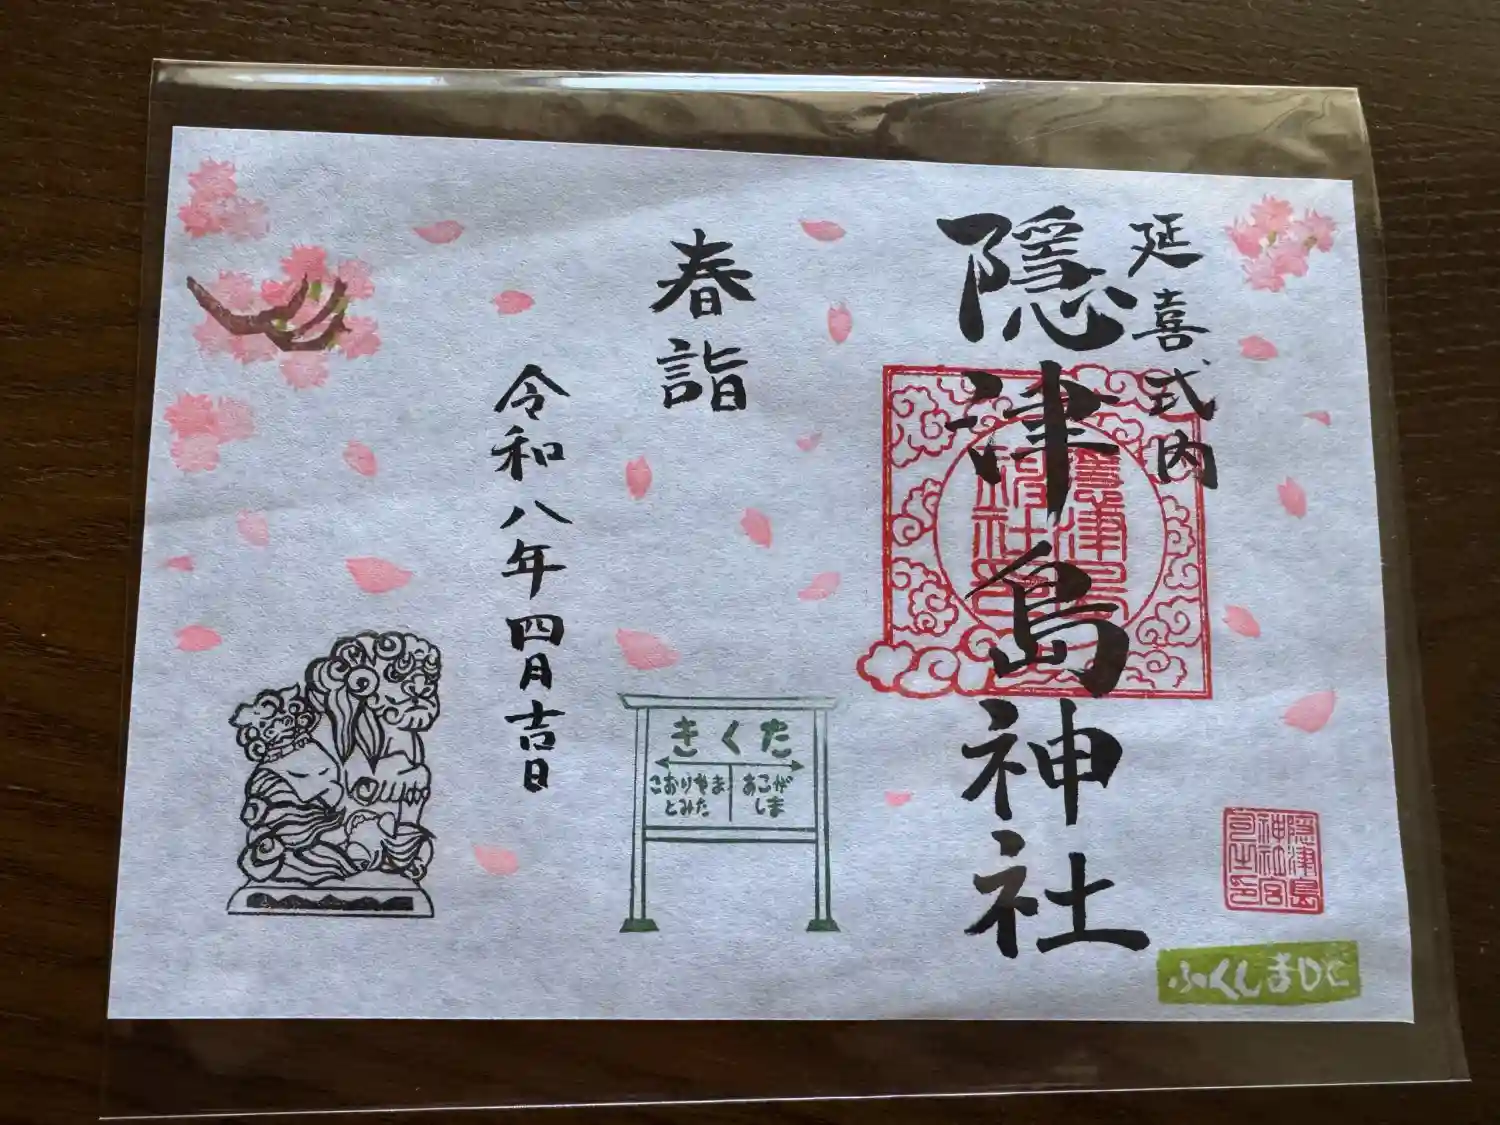 延喜式内
隠津島神社
隠津島
神社宮
司之印
ふくしまDC
春詣
きくた
こおりやま
とみた
あこがしま
令和八年四月吉日